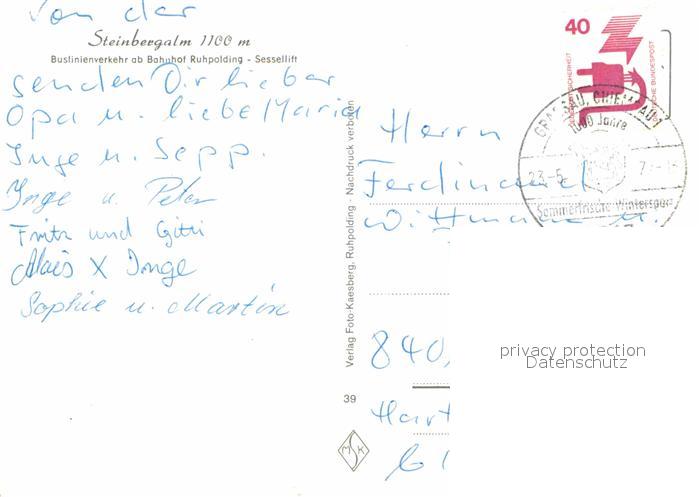 von der
Steinbergalm 1100 m
Buslinienverkehr ab Bahnhof Ruhpolding - Sessellift
senden Dir lieber
Opa u. liebe Maria
Inge u. Sepp.
Inge u. Peter
Fritz und Gitti
Alois X Inge
Sophie u. Martin
Verlag Foto-Kaesberg, Ruhpolding · Nachdruck verboten
39
MSK
40
DEUTSCHE BUNDESPOST
GRASSAU, CHIEMGAU
1000 Jahre
23.-5.
Sommerfrische Wintersport
Herrn
Ferdinand
Wittmann u.
840,
Hart
privacy protection
Datenschutz